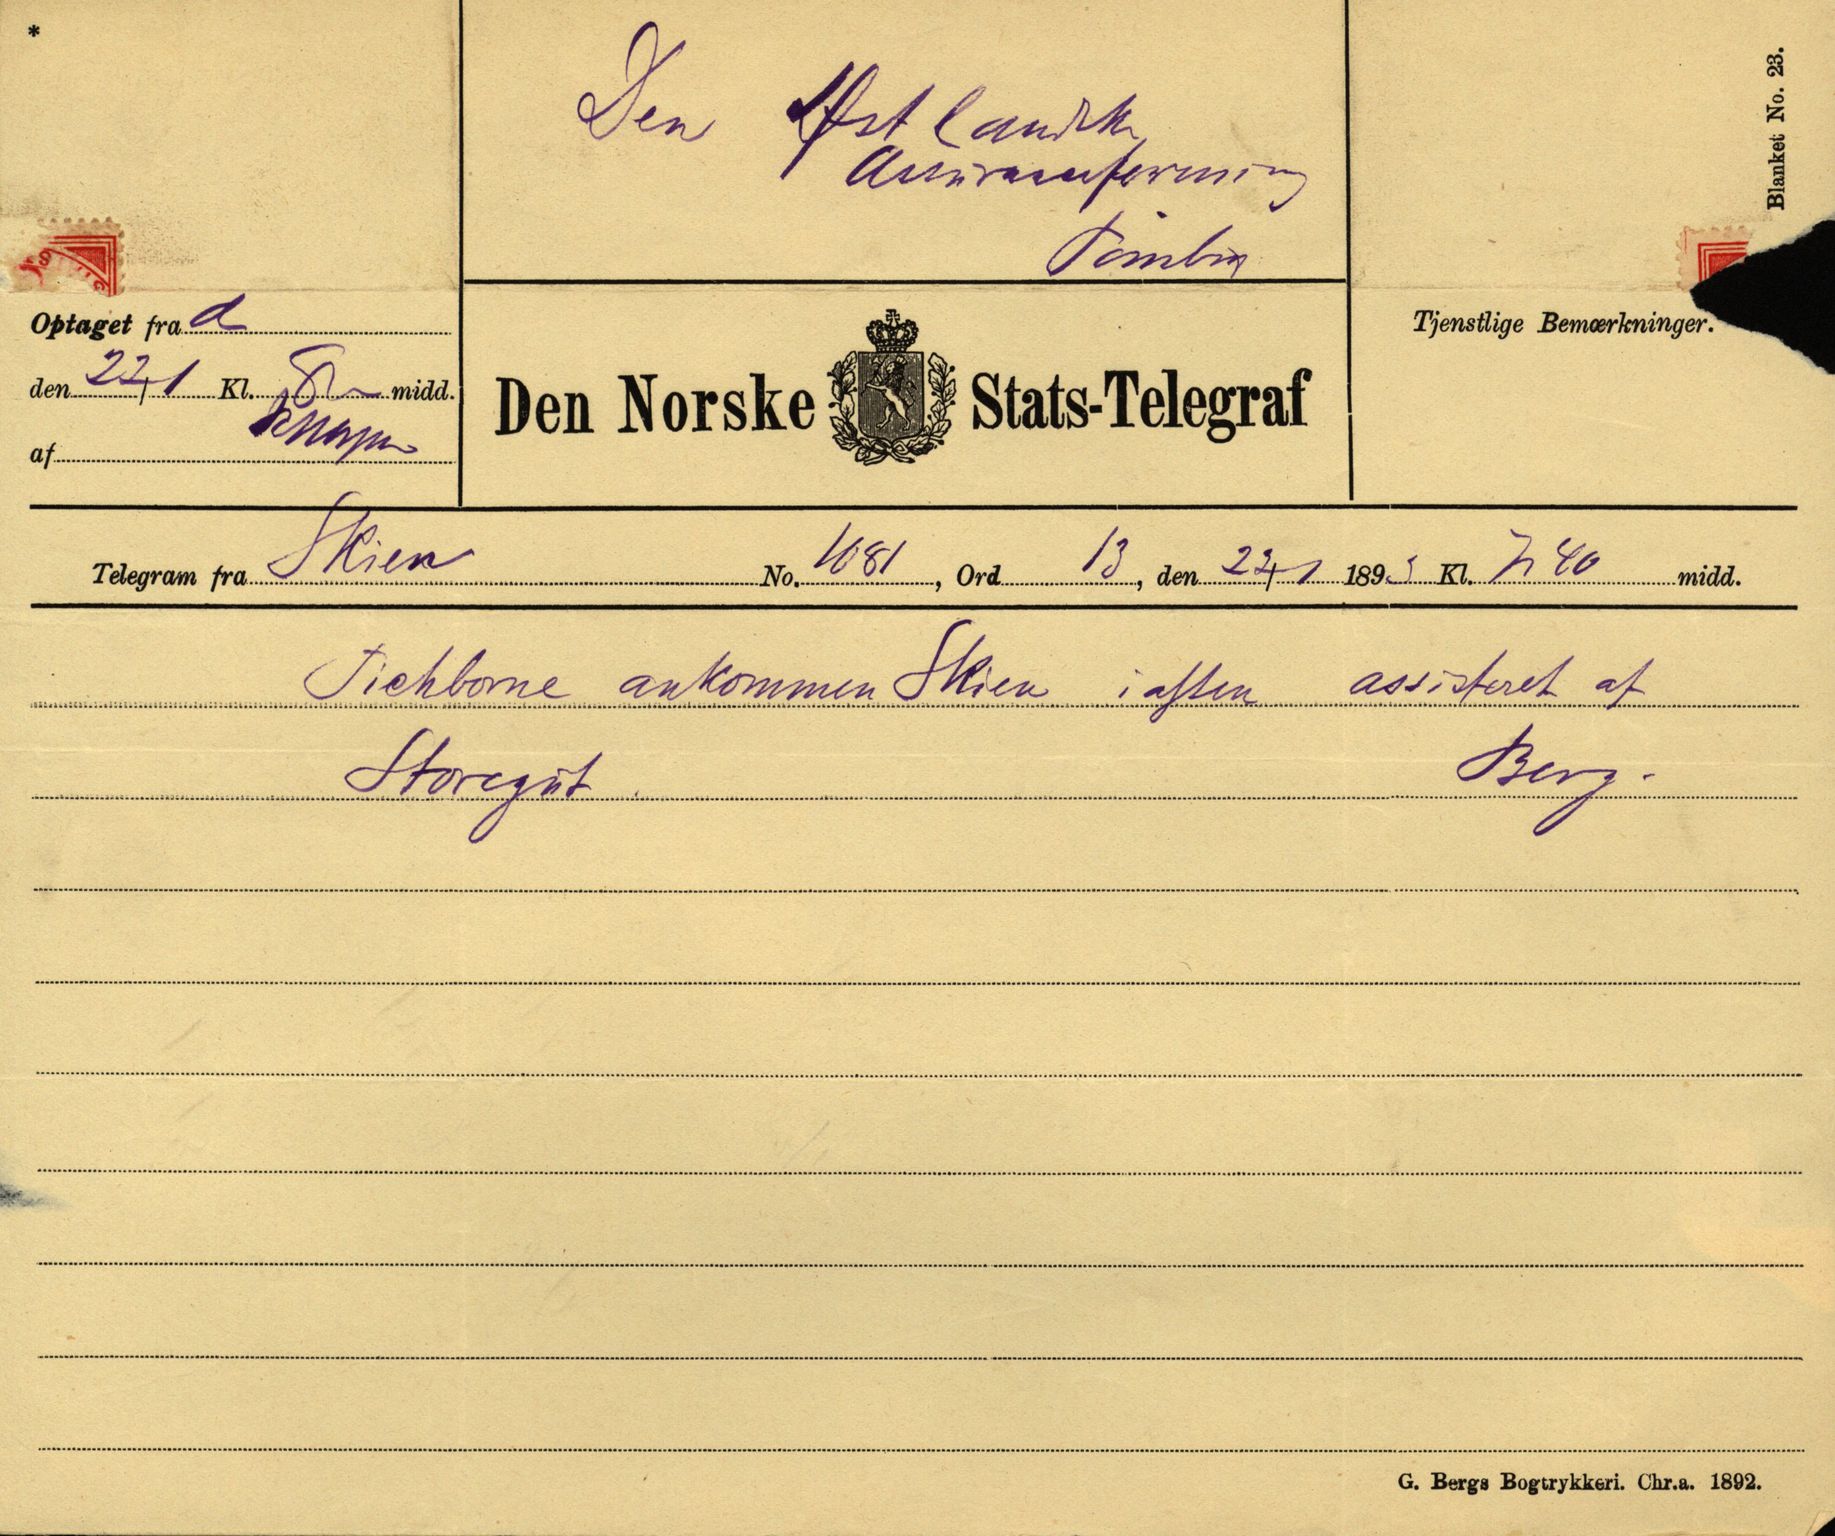 *
Blanket No. 23.
Den Østlandske
Assuranceforening
Optaget fra d
Tjenstlige Bemærkninger.
den 22/1 Kl. 8 midd.
Den Norske Stats-Telegraf
af
Telegram fra Skien No. 1081, Ord 13, den 22/1 1893 Kl. 7,40 midd.
Tichborne ankommen Skien iaften assisteret af
Storegut. Berg.
G. Bergs Bogtrykkeri. Chr.a. 1892.